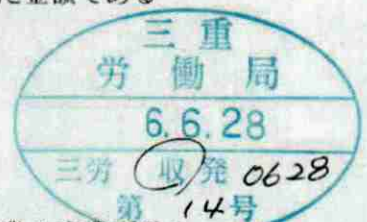 金額である
三重
労働局
6.6.28
三労 収 発 0628
第 14 号